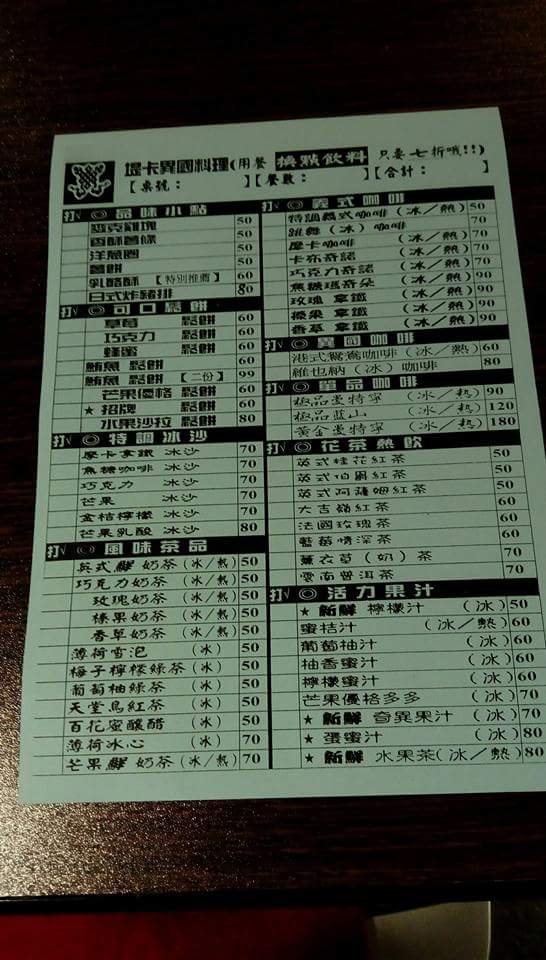 堤卡異國料理(用餐 換點飲料 只要七折哦!!)
【桌號: 】【餐數: 】【合計: 】
打√ ◎ 品味小點
麥克雞塊 50
香酥薯條 50
洋蔥圈 50
薯餅 50
乳酪酥【特別推薦】 60
日式炸豬排 80
打√ ◎ 可口鬆餅
草莓 鬆餅 60
巧克力 鬆餅 60
蜂蜜 鬆餅 60
鮪魚 鬆餅 60
鮪魚 鬆餅【二份】 99
芒果優格 鬆餅 60
★ 招牌 鬆餅 60
水果沙拉 鬆餅 80
打√ ◎ 特調冰沙
摩卡拿鐵 冰沙 70
焦糖咖啡 冰沙 70
巧克力 冰沙 70
芒果 冰沙 70
金桔檸檬 冰沙 70
芒果乳酸 冰沙 80
打√ ◎ 風味茶品
英式鮮奶茶(冰/熱) 50
巧克力奶茶(冰/熱) 50
玫瑰奶茶(冰/熱) 50
榛果奶茶(冰/熱) 50
香草奶茶(冰/熱) 50
薄荷雪泡 (冰) 50
梅子檸檬綠茶(冰) 50
葡萄柚綠茶 (冰) 50
天堂鳥紅茶 (冰) 50
百花蜜釀醋 (冰) 50
薄荷冰心 (冰) 70
芒果鮮奶茶(冰/熱) 70
打√ ◎ 義式咖啡
特調義式咖啡(冰/熱) 50
跳舞(冰)咖啡 70
摩卡咖啡 (冰/熱) 70
卡布奇諾 (冰/熱) 70
巧克力奇諾 (冰/熱) 90
焦糖瑪奇朵 (冰/熱) 90
玫瑰 拿鐵 (冰/熱) 90
榛果 拿鐵 (冰/熱) 90
香草 拿鐵 (冰/熱) 90
打√ ◎ 異國咖啡
港式鴛鴦咖啡(冰/熱) 60
維也納(冰)咖啡 80
打√ ◎ 單品咖啡
極品曼特寧 (冰/熱) 90
極品藍山 (冰/熱) 120
黃金曼特寧 (冰/熱) 180
打√ ◎ 花茶熱飲
英式桂花紅茶 50
英式伯爵紅茶 50
英式阿薩姆紅茶 50
大吉嶺紅茶 60
法國玫瑰茶 60
藍莓情深茶 60
薰衣草(奶)茶 70
雲南普洱茶 70
打√ ◎ 活力果汁
★ 新鮮 檸檬汁 (冰) 50
蜜桔汁 (冰/熱) 60
葡萄柚汁 (冰) 60
柚香蜜汁 (冰) 60
檸檬蜜汁 (冰) 60
芒果優格多多 (冰) 70
★ 新鮮 奇異果汁 (冰) 70
★ 蛋蜜汁 (冰) 80
★ 新鮮 水果茶(冰/熱) 80